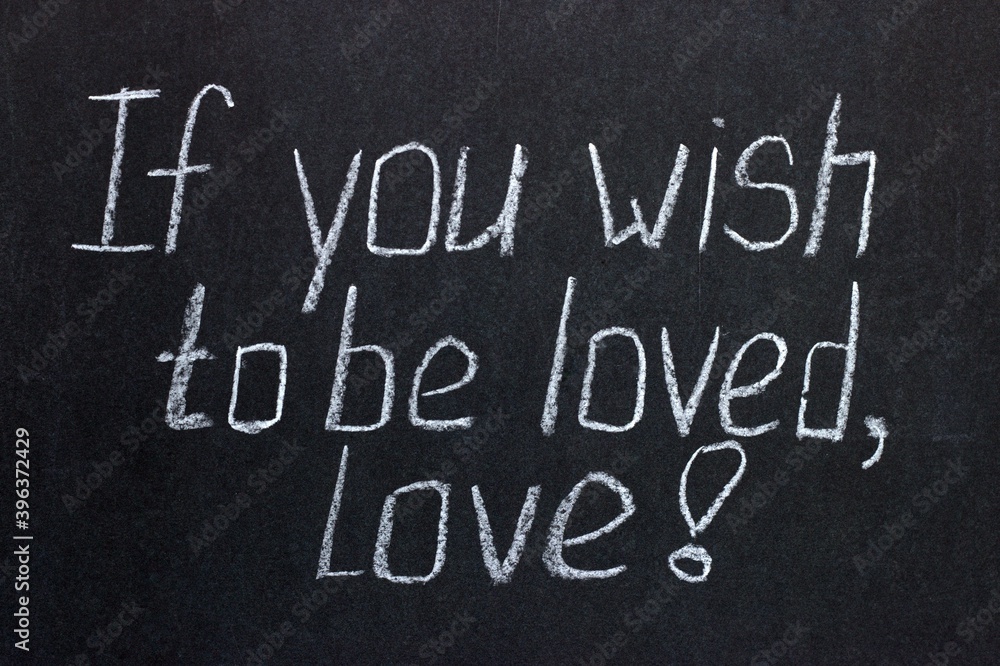 If you wish
to be loved,
Love!
Adobe Stock | #396372429